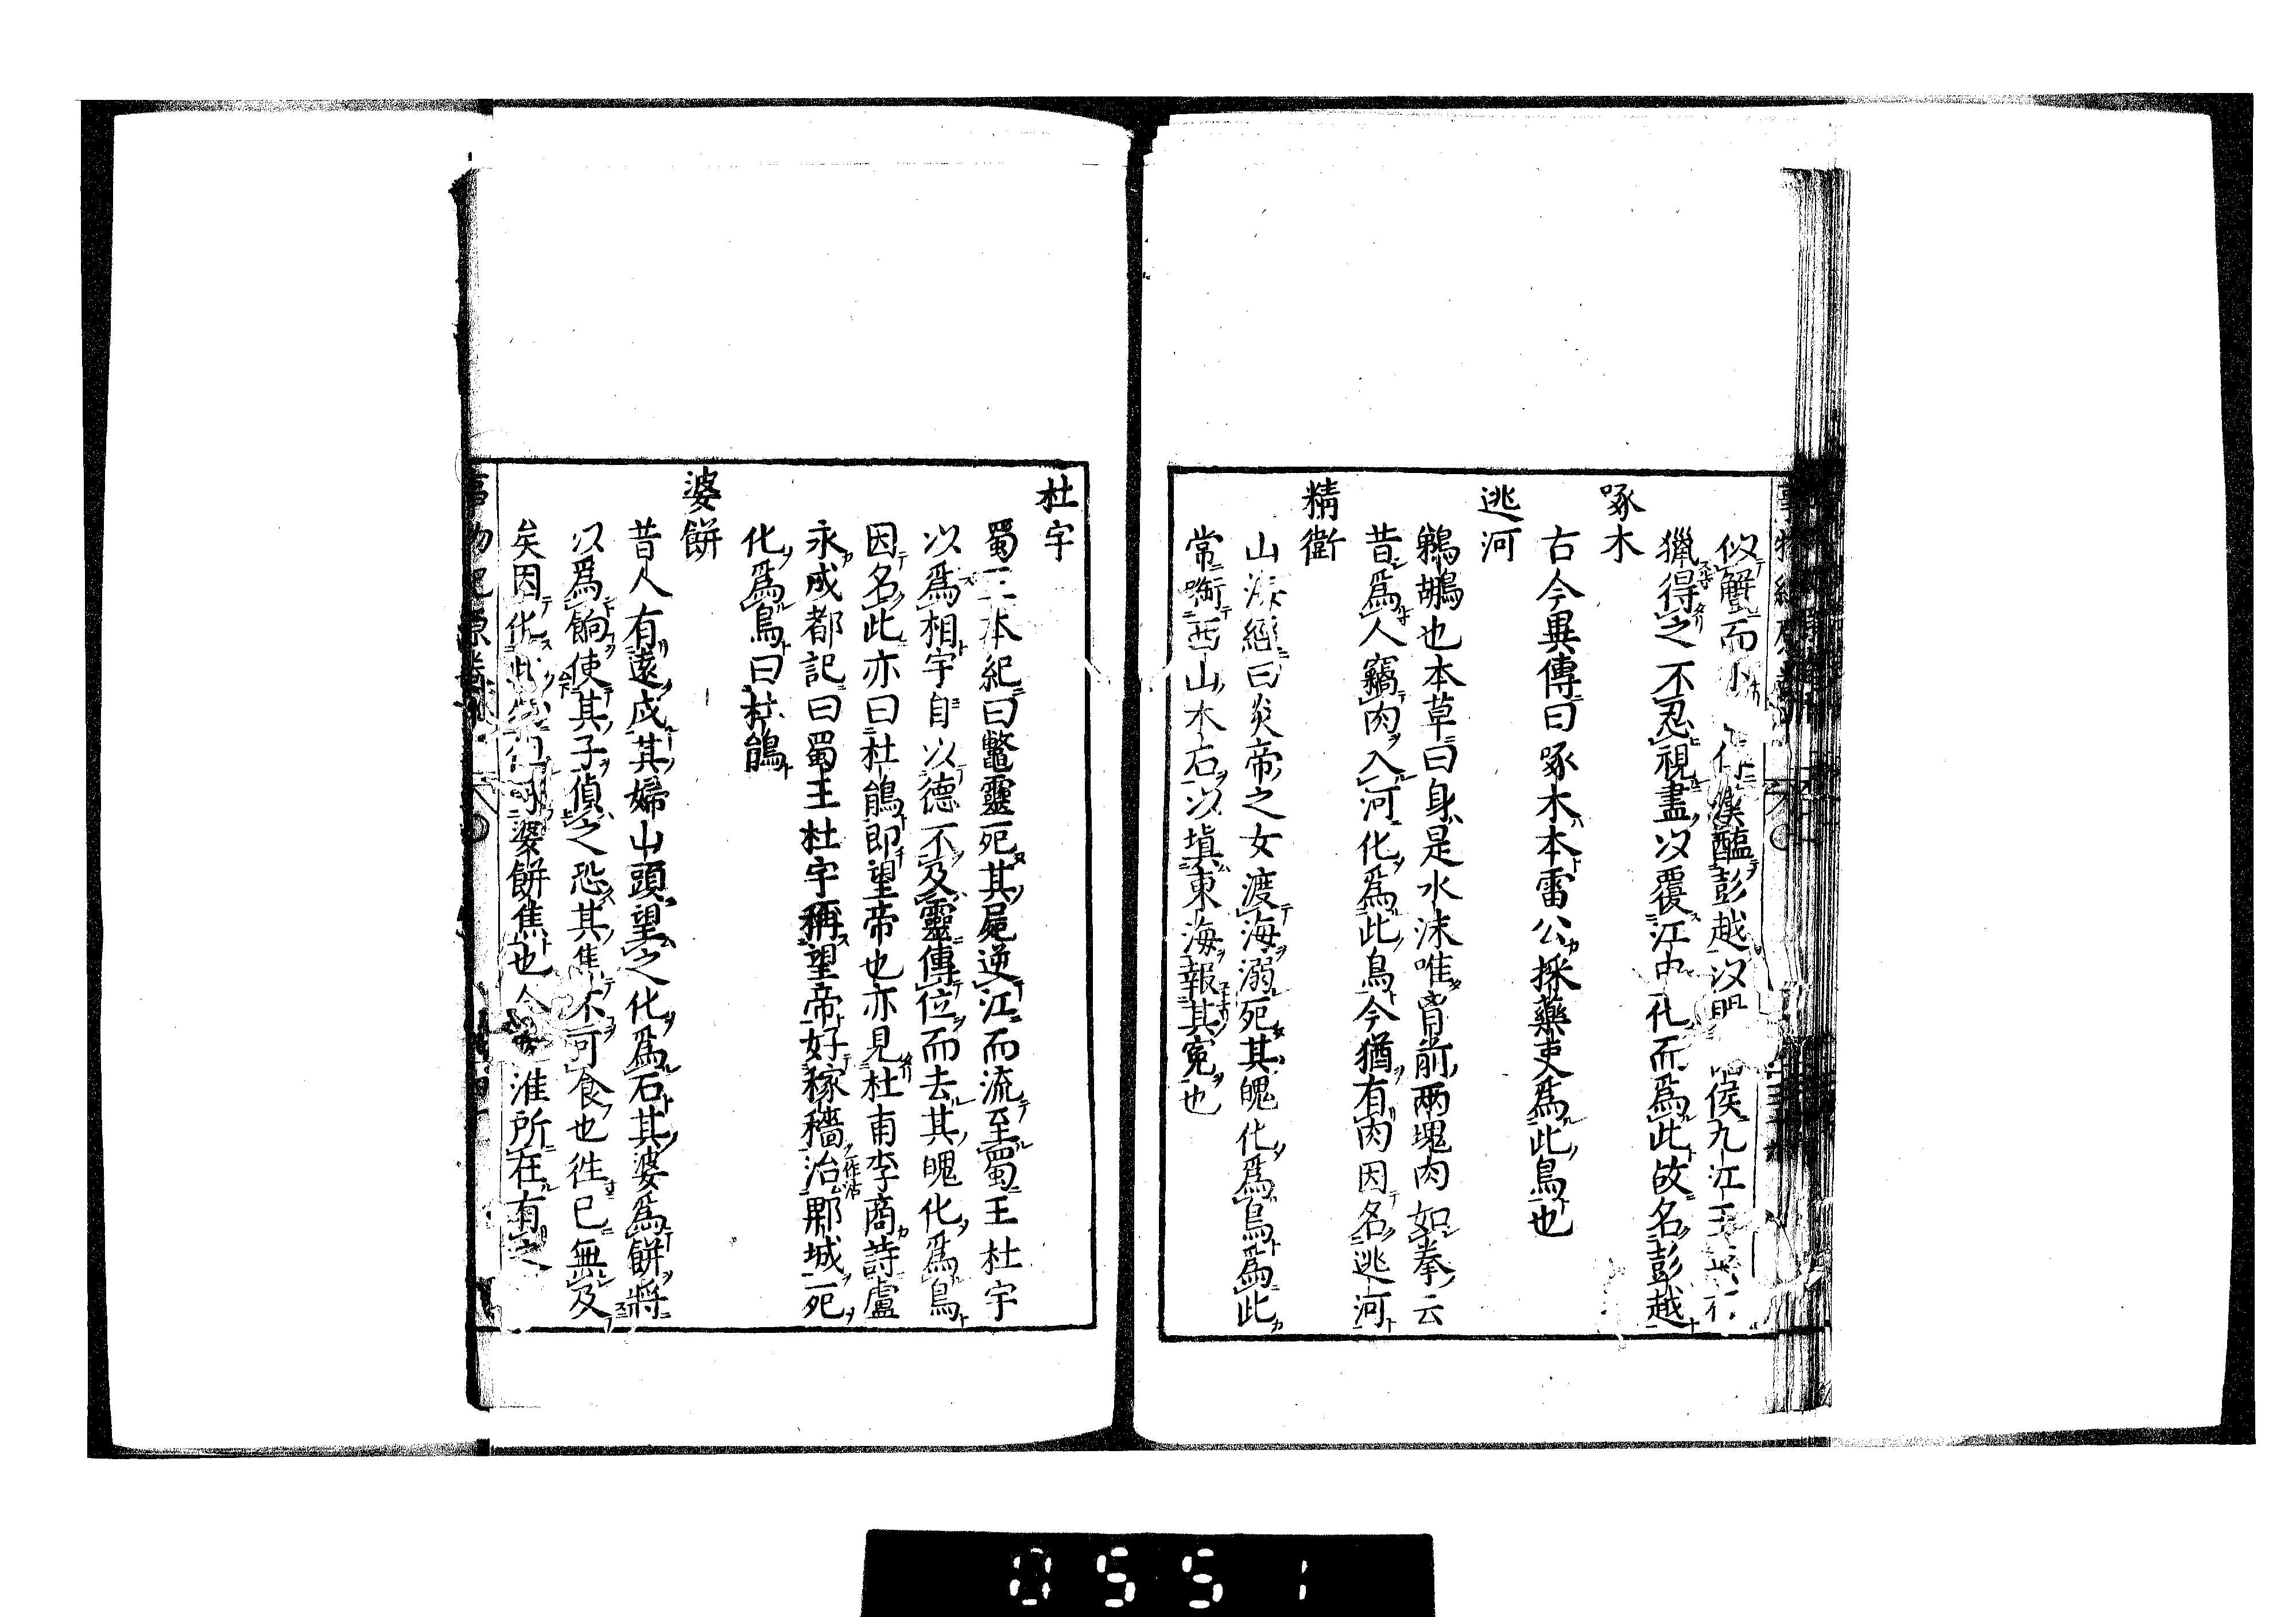 似蟹而小 漢醢彭越以 侯九江王
獵得之不忍視盡以覆江中化而爲此故名彭越
啄木
古今異傳曰啄木本雷公採藥吏爲此鳥也
逃河
鵜鶘也本草曰身是水沫唯胷前兩塊肉如拳云
昔爲人竊肉入河化爲此鳥今猶有肉因名逃河
精衛
山海經曰炎帝之女渡海溺死其魄化爲鳥爲此
常銜西山木石以塡東海報其寃也
杜宇
蜀王本紀曰鼈靈死其屍逆江而流至蜀王杜宇
以爲相宇自以德不及靈傳位而去其魄化爲鳥
因名此亦曰杜鵑即望帝也亦見杜甫李商詩盧
永成都記曰蜀王杜宇稱望帝好稼穡治郫城死
一作活
化爲鳥曰杜鵑
婆餅
昔人有遠戍其婦山頭望之化爲石其婆爲餅將
以爲餉使其子偵之恐其焦不可食也徃已無及
矣因化此 婆餅焦也今 淮所在有之
0551